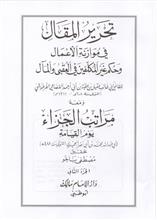 تحرير المقال
في موازنة الأعمال
وحكم غير المكلفين في العقبى والمآل
ومعه
مراتب الجزاء
يوم القيامة
تحقيق
مصطفى باحو
الجزء الثاني
دار الإمام مالك
أبوظبي